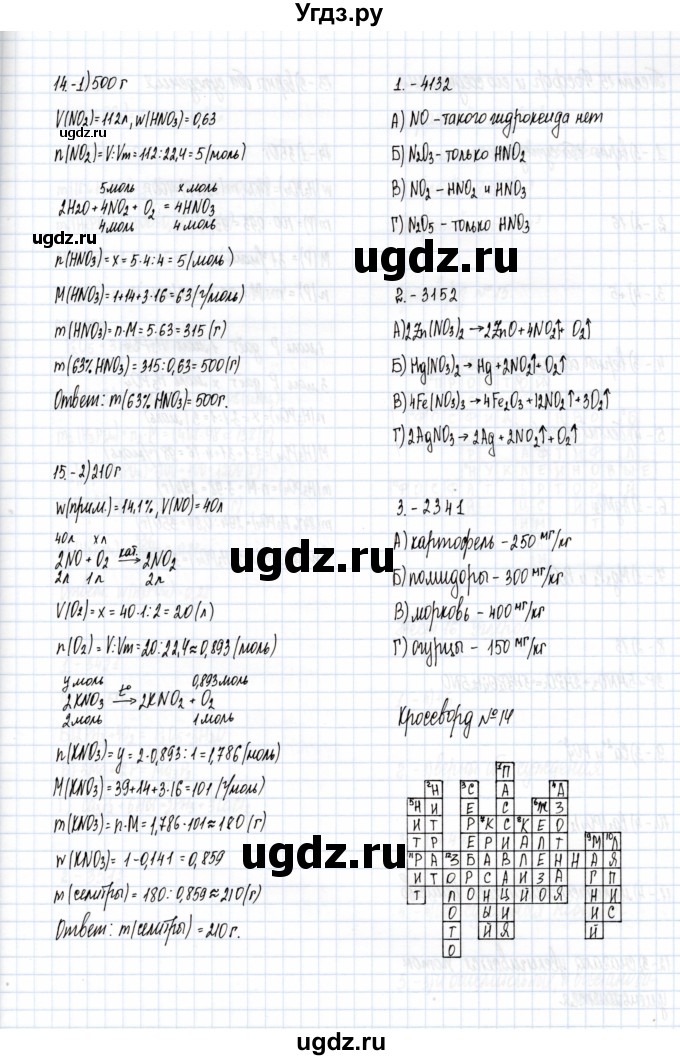 Угдз.ру
14.-1)500 г
V(NO₂)=112л, w(HNO₃)=0,63
n(NO₂)=V:Vm=112:22,4=5(моль)
5моль x моль
2H2O+4NO₂+O₂=4HNO₃
4моль 4 моль
n(HNO₃)=x=5·4:4=5(моль)
M(HNO₃)=1+14+3·16=63(г/моль)
m(HNO₃)=n·M=5·63=315(г)
m(63%HNO₃)=315:0,63=500(г)
Ответ: m(63%HNO₃)=500г.
15.-2)210г
w(прим.)=14,1%, V(NO)=40л
40л xл
2NO+O₂ кат.→ 2NO₂
2л 1л 2л
V(O₂)=x=40·1:2=20(л)
n(O₂)=V:Vm=20:22,4≈0,893(моль)
y моль 0,893моль
2KNO₃ t°→ 2KNO₂+O₂
2моль 1моль
n(KNO₃)=y=2·0,893:1=1,786(моль)
M(KNO₃)=39+14+3·16=101(г/моль)
m(KNO₃)=n·M=1,786·101≈180(г)
w(KNO₃)=1-0,141=0,859
m(селитры)=180:0,859≈210(г)
Ответ: m(селитры)=210г.
1.-4132
А) NO-такого гидроксида нет
Б) N₂O₃-только HNO₂
В) NO₂-HNO₂ и HNO₃
Г) N₂O₅-только HNO₃
2.-3152
А)2Zn(NO₃)₂→2ZnO+4NO₂↑+O₂↑
Б) Hg(NO₃)₂→Hg+2NO₂↑+O₂↑
В)4Fe(NO₃)₃→4Fe₂O₃+12NO₂↑+3O₂↑
Г)2AgNO₃→2Ag+2NO₂↑+O₂↑
3.-2341
А)картофель-250 мг/кг
Б)помидоры-300 мг/кг
В)морковь-400 мг/кг
Г)огурцы-150 мг/кг
Кроссворд №14
П
Н С А А
Н И Е С Ж З
И Т Р К С К Е О М Л
Т Р Р Е Р И А Л Т А Я
Р А З Б А В Л Е Н Н А Я
И Т О Р С А И З А Г П
Т Л О Н Ц Й О Я Н И
О Ы И И С
Т Й Я Й
О
угдз.ру
угдз.ру
угдз.ру
угдз.ру
угдз.ру
угдз.ру
угдз.ру
угдз.ру
угдз.ру